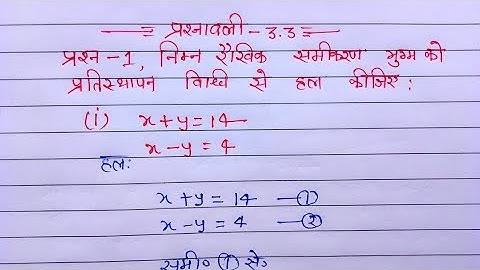 प्रश्नावली - 3.3
प्रश्न -1, निम्न रैखिक समीकरण युग्म को
प्रतिस्थापन विधि से हल कीजिए :
(i) x+y=14
x-y=4
हल:
x+y=14 —①
x-y=4 —②
समी० ① से०